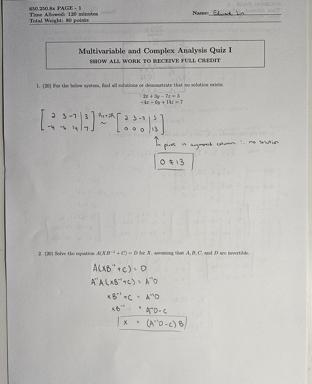 650.250.8x PAGE - 1
Time Allowed: 120 minutes
Total Weight: 80 points
Name:
Multivariable and Complex Analysis Quiz I
SHOW ALL WORK TO RECEIVE FULL CREDIT
1. (20) For the below system, find all solutions or demonstrate that no solution exists.
2x + 3y − 7z = 3
−4x − 6y + 14z = 7
[ 2 3 -7 | 3 ] [ 2 3 -7 | 3 ]
[ -4 -6 14 | 7 ] ~ [ 0 0 0 | 13 ]
pivot in augmented column ∴ no solution
0 ≠ 13
2. (20) Solve the equation A(XB⁻¹ + C) = D for X, assuming that A, B, C, and D are invertible.
A(XB⁻¹ + C) = D
A⁻¹A(XB⁻¹ + C) = A⁻¹D
XB⁻¹ + C = A⁻¹D
XB⁻¹ = A⁻¹D - C
X = (A⁻¹D - C)B